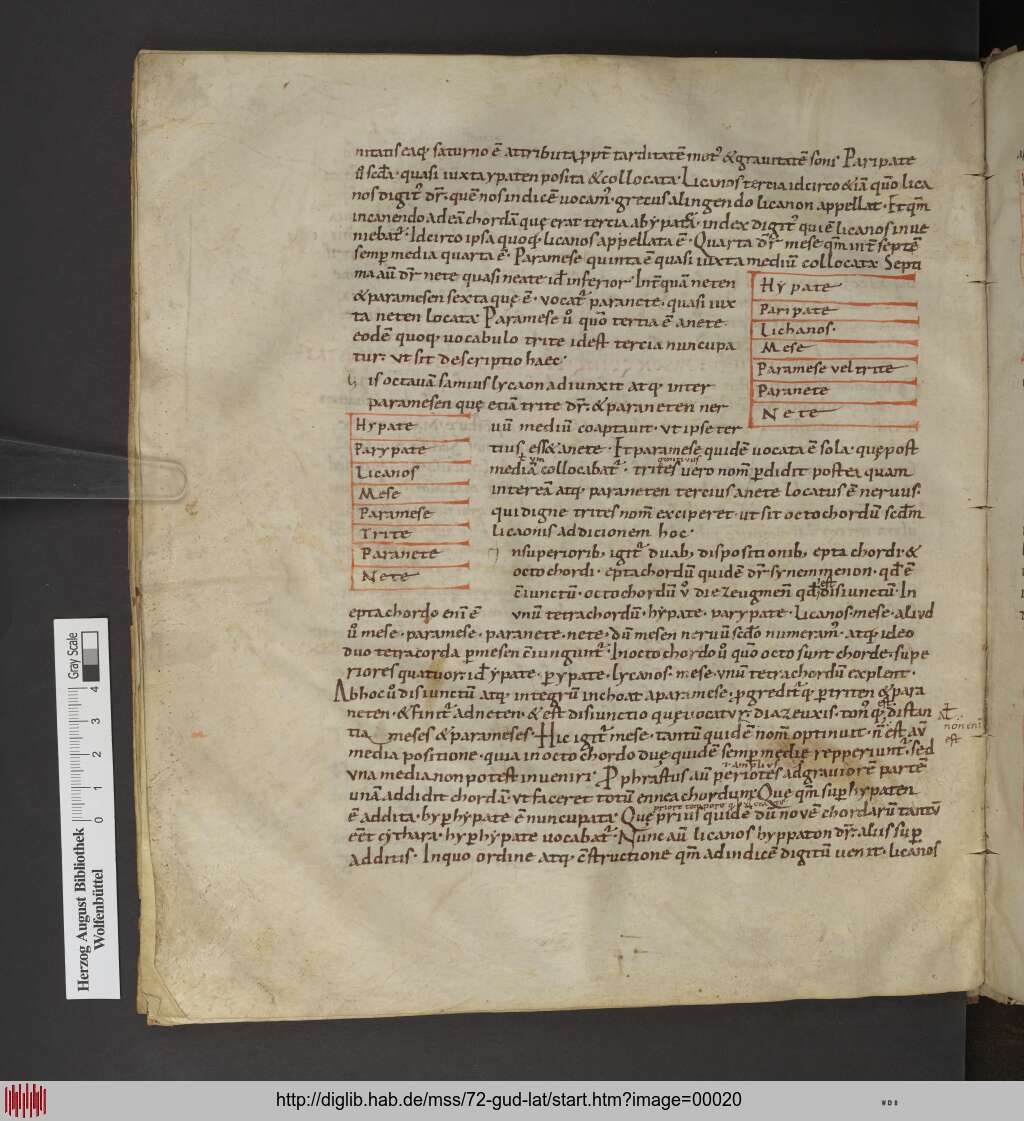 nitatis eaq; saturno ē attributa ꝓpt̄ tarditatē mot᷒ & grauitatē soni᷒ Paripate
u̓ scđa · quasi iuxta ypaten posita & collocata · Licanos tercia idcirco & iā quo̅ lica
nos digit᷒ dr̄ · quē nos indicē vocam᷒ · grecus alingendo licanon appellat · Et qm̄
incanendo ad eā chordā quę erat tercia ab ypate · index digit᷒ qui ē licanos inue
niebat᷑ · Idcirco ipsa quoq; licanos appellata ē · Quarta dr̄ mese qm̄ int̄ septē
semꝑ media quarta ē · Paramese quinta ē quasi iuxta mediū collocata Septi
ma aū dr̄ nete quasi neate id̄ inferior · Int̄ quā neten
& paramesen sexta quę ē · vocat᷑ paranete · quasi iux
ta neten locata Paramese u̓ quō tertia ē anete
eodē quoq; vocabulo trite idest tercia nuncupa
tur · vt sit descriptio haec ·
Hypate
Paripate
Lichanos ·
Mese
Paramese vel trite
Paranete
Nete
is octauā samius lycaon adiunxit atq; inter
paramesen quę etiā trite dr̄ · & paraneten ner
uū mediū coaptauit · vt ipse ter
tius ess& anete · Et paramese quidē uocata ē sola · quę post
mediā collocabat᷑ · trites uero nom̄ ꝑdidit postea quam
interea atq; paraneten tercius anete locatus ē neruus ·
qui digne trites nom̄ exciperet · ut sit octochordū scđm
licaonis addicionem hoc ·
Hypate
Parypate
Licanos
Mese
Paramese
Trite
Paranete
Nete
nsuperiorib; igit᷑ duab; dispositionib; epta chordi · &
octochordi · eptachordū quidē dr̄ synemmenon · qđ ē
c̄iunctū · octochordū u̓ diezeugmen̄ qđ est disiunctū · In
eptachordo eni̅ ē vnū tetrachordū · hypate · parypate · licanos · mese · aliud
u̓ mese · paramese · paranete · nete · dū mesen neruū scđo numeram᷒ · atq; ideo
duo tetracorda ꝑ mesen c̄iungunt᷑ · In octochordo u̓ quo octo sunt chorde · supe
riores quatuor · id̄ ypate · ꝑypate · lycanos · mese · vnū tetrachordū explent ·
Ab hoc u̓ disiunctū atq; integrū inchoat aparamese · ꝓgredit᷑q; ꝑ triten & para
neten · & finit᷑ ad neten · & est disiunctio que vocatur · diazeuxis · ton᷒ q; distan
tia meses & parameses · Hic igit᷑ mese · tantū quidē nom̄ optinuit · n̄ est aū
media positione · quia in octochordo duę quidē semꝑ medię repperiunt᷑ · sed
vna media non potest inueniri · Pphrastus aū periotes ad grauiorē partē
unā addidit chordā · vt faceret totū ennea chordum · Que qm̄ suꝑ hypaten
ē addita · hyꝑhypate ē nuncupata · Quę prius quidē dū nouē chordarū tantū
eēt cythara · hyꝑhypate vocabat᷑ · Nunc aū licanos hyppaton dr̄ · aliis suꝑ
additis · In quo ordine atq; c̄structione qm̄ ad indicē digitū uenit · licanos
non eni̅
est
http://diglib.hab.de/mss/72-gud-lat/start.htm?image=00020
Herzog August Bibliothek
Wolfenbüttel
Gray Scale
0 1 2 3 4